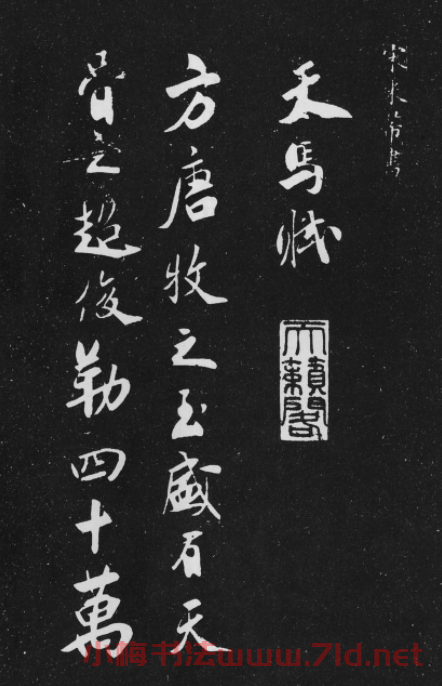 宋米芾書
天馬賦
天籟閣
方唐牧之至盛有天
骨之超俊勒四十萬
小梅书法www.7ld.net